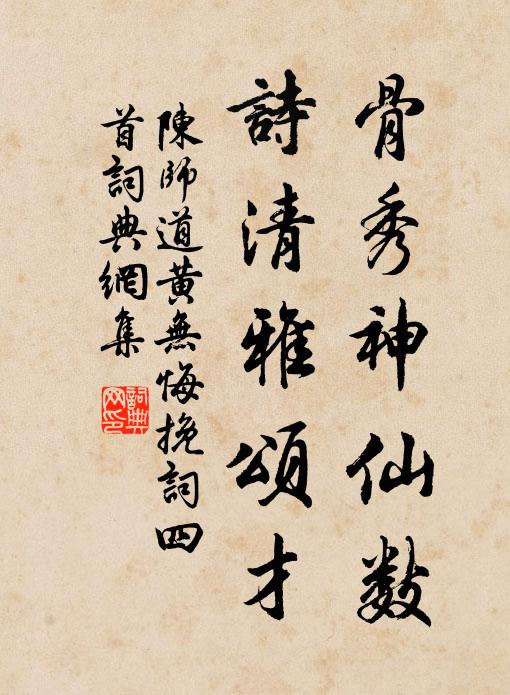 骨秀神仙数
詩清雅頌才
陳師道黄無悔挽詞四
首詞典網集
詞典
网印